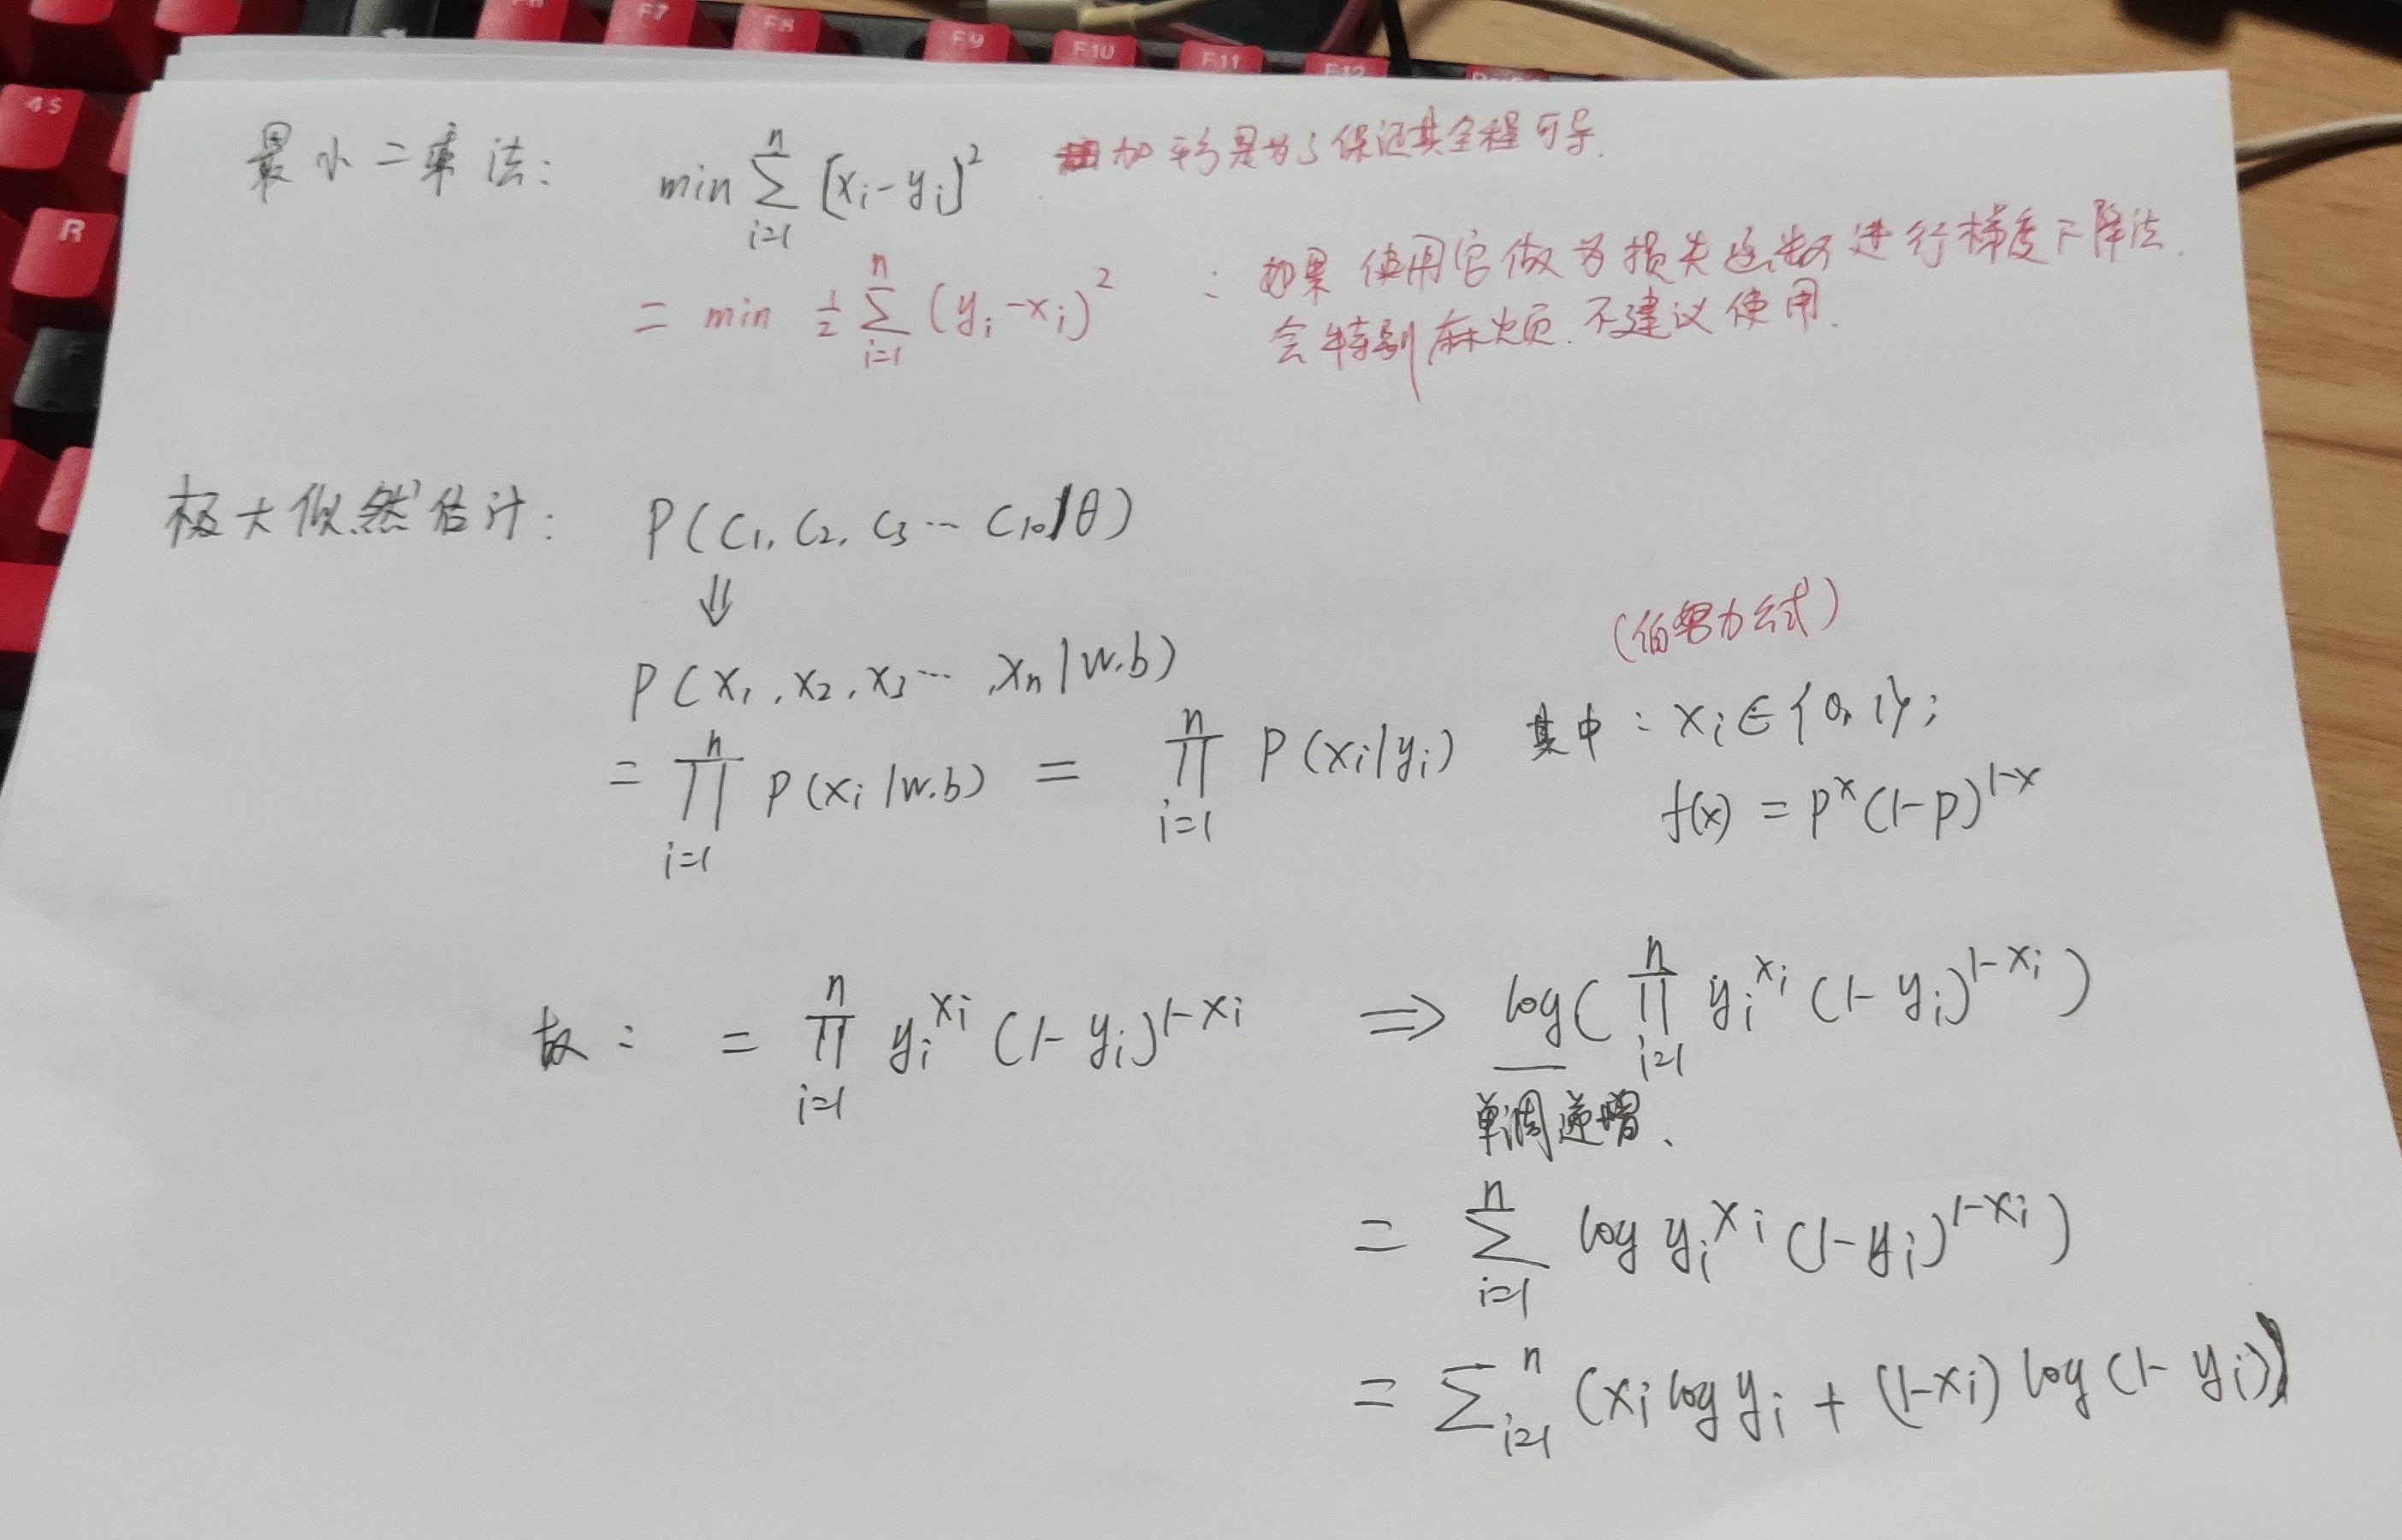 F6 F7 F8 F9 F10 F11 F12
4 $
R
F
最小二乘法: min ∑_{i=1}^{n} [x_i - y_i]^2 加平方是为了保证其全程可导.
= min 1/2 ∑_{i=1}^{n} (y_i - x_i)^2 : 如果使用它做为损失函数进行梯度下降法.
会特别麻烦.不建议使用.
极大似然估计: P(C_1, C_2, C_3 ... C_10|θ)
⇓
P(x_1, x_2, x_3 ... , x_n|w.b) (伯努力公式)
= ∏_{i=1}^{n} P(x_i|w.b) = ∏_{i=1}^{n} P(x_i|y_i) 其中: x_i∈{0, 1};
f(x) = p^x (1-p)^{1-x}
故: = ∏_{i=1}^{n} y_i^{x_i} (1-y_i)^{1-x_i} ⇒ log(∏_{i=1}^{n} y_i^{x_i} (1-y_i)^{1-x_i})
单调递增、
= ∑_{i=1}^{n} log y_i^{x_i} (1-y_i)^{1-x_i})
= ∑_{i=1}^{n} (x_i log y_i + (1-x_i) log (1-y_i))